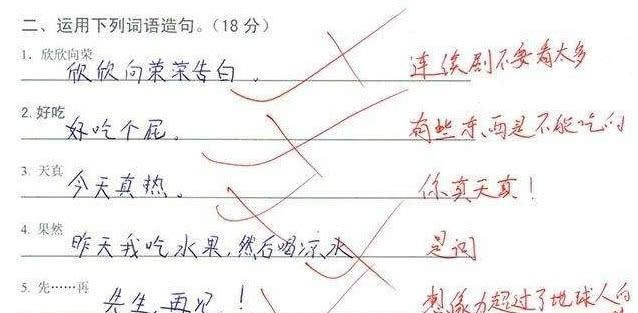 二、运用下列词语造句。(18分)
1. 欣欣向荣
欣欣向荣荣告白。 连续剧不要看太多
2. 好吃
好吃个屁。 有些东西是不能吃的
3. 天真
今天真热。 你真天真!
4. 果然
昨天我吃水果,然后喝凉水 是词
5. 先……再
先生,再见! 想像力超过了地球人的